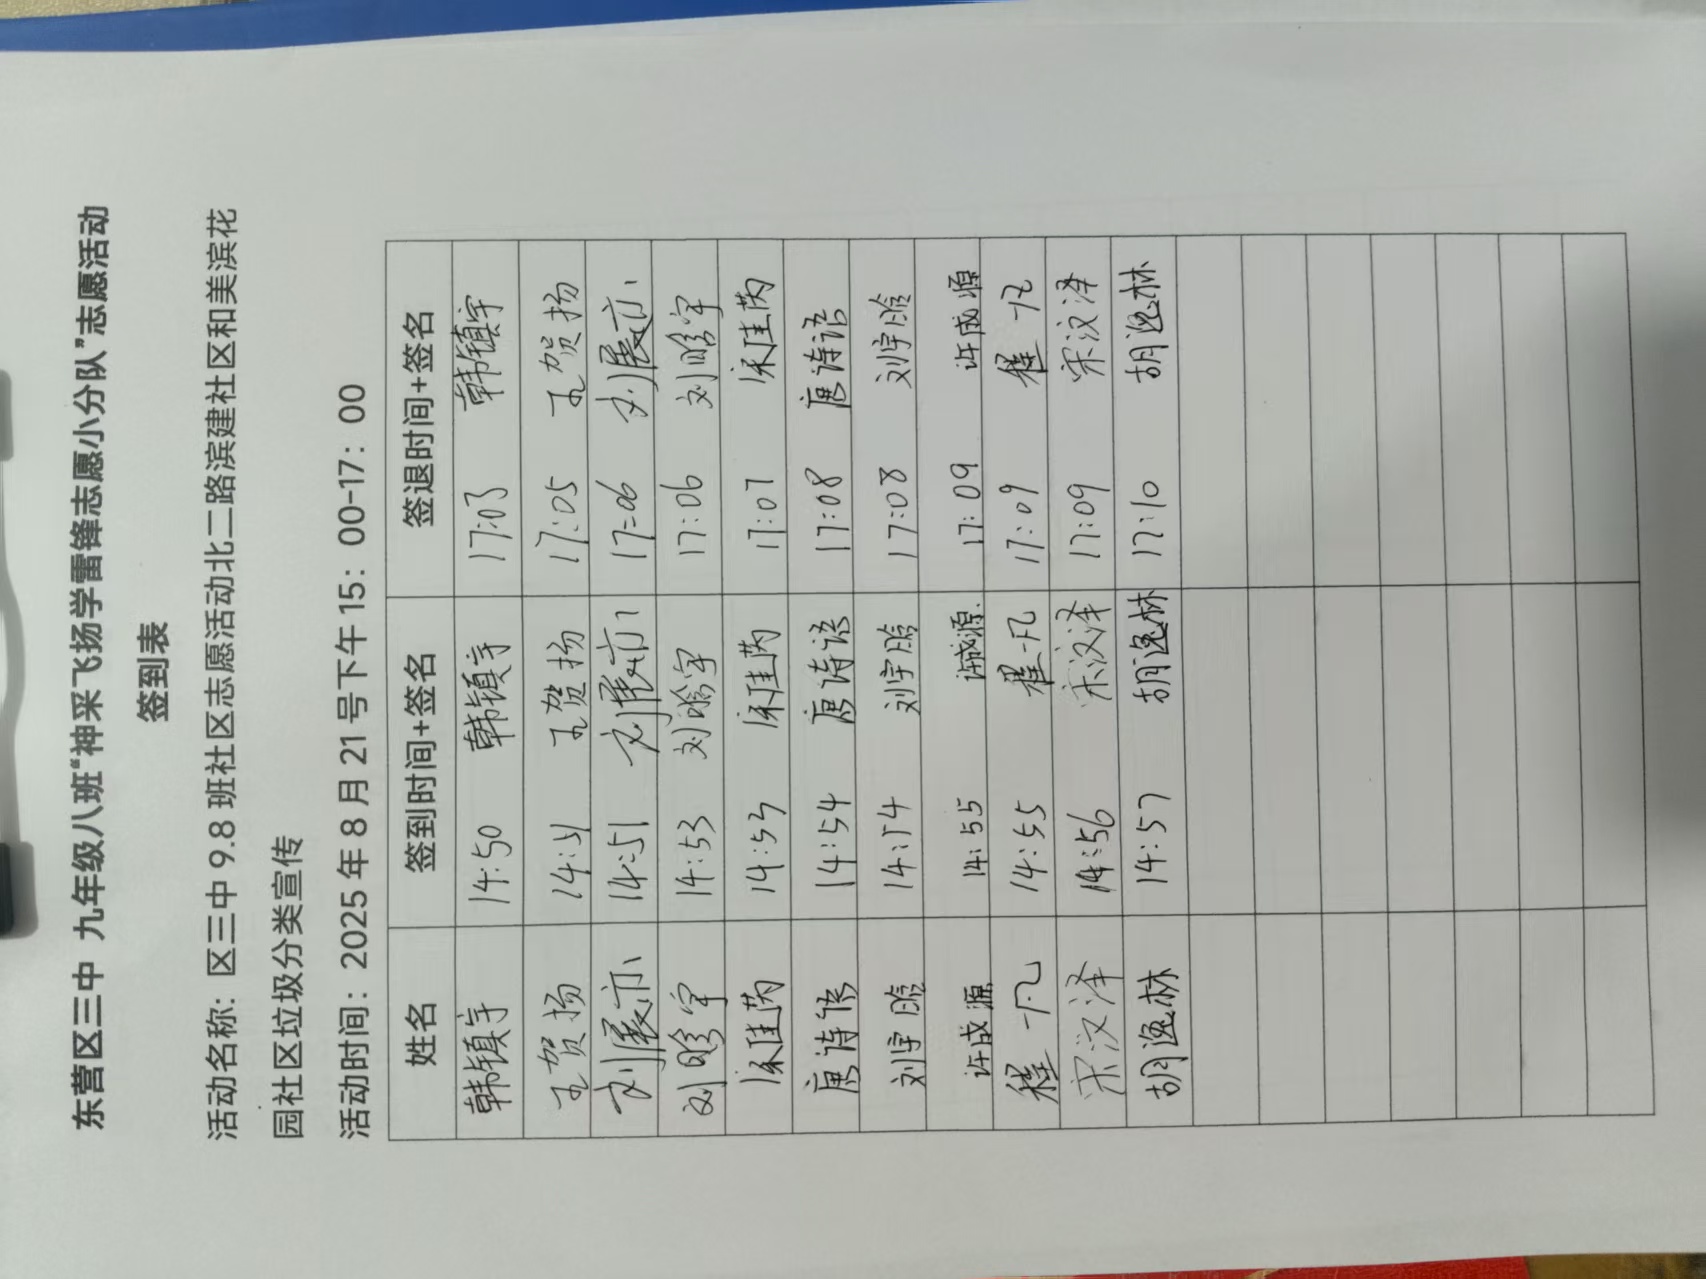 东营区三中 九年级八班“神采飞扬学雷锋志愿小分队”志愿活动
签到表
活动名称：区三中 9.8 班社区志愿活动北二路滨建社区和美滨花
园社区垃圾分类宣传
活动时间：2025 年 8 月 21 号下午 15：00-17：00
姓名 签到时间+签名 签退时间+签名
韩镇宇 14:50 韩镇宇 17:03 韩镇宇
王贺扬 14:51 王贺扬 17:05 王贺扬
刘展亦 14:51 刘展亦 17:06 刘展亦
刘晗宇 14:53 刘晗宇 17:06 刘晗宇
14:53 17:07
唐诗语 14:54 唐诗语 17:08 唐诗语
刘宇晗 14:54 刘宇晗 17:08 刘宇晗
许成源 14:55 许成源 17:09 许成源
程一凡 14:55 程一凡 17:09 程一凡
宋汶泽 14:56 宋汶泽 17:09 宋汶泽
胡逸林 14:57 胡逸林 17:10 胡逸林